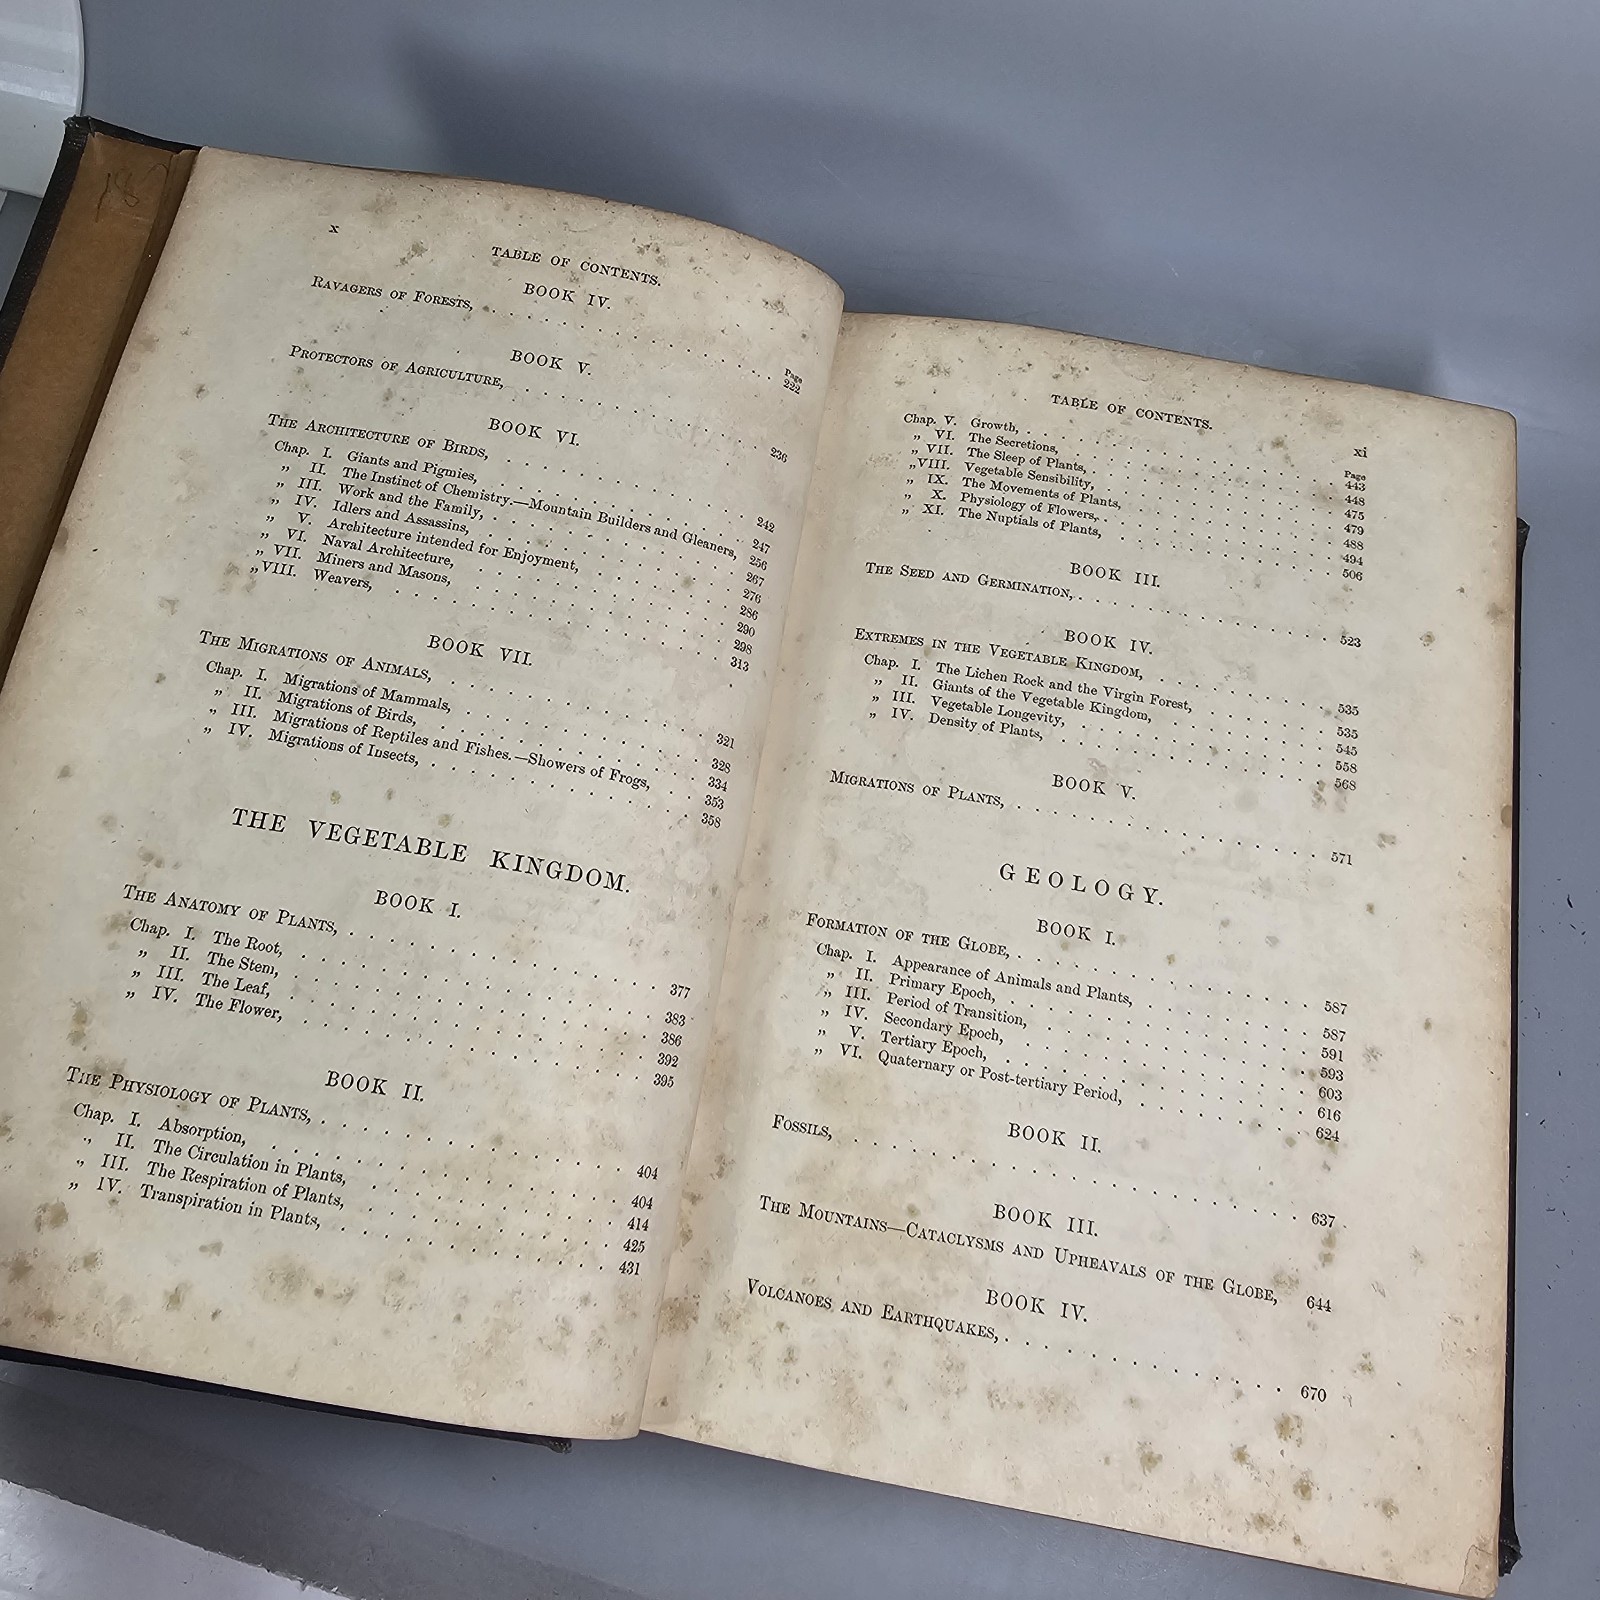 x
TABLE OF CONTENTS.
BOOK IV.
Page
RAVAGERS OF FORESTS, 222
BOOK V.
PROTECTORS OF AGRICULTURE, 236
BOOK VI.
THE ARCHITECTURE OF BIRDS, 242
Chap. I. Giants and Pigmies, 247
„ II. The Instinct of Chemistry.—Mountain Builders and Gleaners, 256
„ III. Work and the Family, 267
„ IV. Idlers and Assassins, 276
„ V. Architecture intended for Enjoyment, 286
„ VI. Naval Architecture, 290
„ VII. Miners and Masons, 298
„VIII. Weavers, 313
BOOK VII.
THE MIGRATIONS OF ANIMALS, 321
Chap. I. Migrations of Mammals, 328
„ II. Migrations of Birds, 334
„ III. Migrations of Reptiles and Fishes.—Showers of Frogs, 353
„ IV. Migrations of Insects, 358
THE VEGETABLE KINGDOM.
BOOK I.
THE ANATOMY OF PLANTS, 377
Chap. I. The Root, 383
„ II. The Stem, 386
„ III. The Leaf, 392
„ IV. The Flower, 395
BOOK II.
THE PHYSIOLOGY OF PLANTS, 404
Chap. I. Absorption, 404
„ II. The Circulation in Plants, 414
„ III. The Respiration of Plants, 425
„ IV. Transpiration in Plants, 431
TABLE OF CONTENTS.
xi
Page
Chap. V. Growth, 443
„ VI. The Secretions, 448
„ VII. The Sleep of Plants, 475
„VIII. Vegetable Sensibility, 479
„ IX. The Movements of Plants, 488
„ X. Physiology of Flowers, 494
„ XI. The Nuptials of Plants, 506
BOOK III.
THE SEED AND GERMINATION, 523
BOOK IV.
EXTREMES IN THE VEGETABLE KINGDOM, 535
Chap. I. The Lichen Rock and the Virgin Forest, 535
„ II. Giants of the Vegetable Kingdom, 545
„ III. Vegetable Longevity, 558
„ IV. Density of Plants, 568
BOOK V.
MIGRATIONS OF PLANTS, 571
GEOLOGY.
BOOK I.
FORMATION OF THE GLOBE, 587
Chap. I. Appearance of Animals and Plants, 587
„ II. Primary Epoch, 591
„ III. Period of Transition, 593
„ IV. Secondary Epoch, 603
„ V. Tertiary Epoch, 616
„ VI. Quaternary or Post-tertiary Period, 624
BOOK II.
FOSSILS, 637
BOOK III.
THE MOUNTAINS—CATACLYSMS AND UPHEAVALS OF THE GLOBE, 644
BOOK IV.
VOLCANOES AND EARTHQUAKES, 670